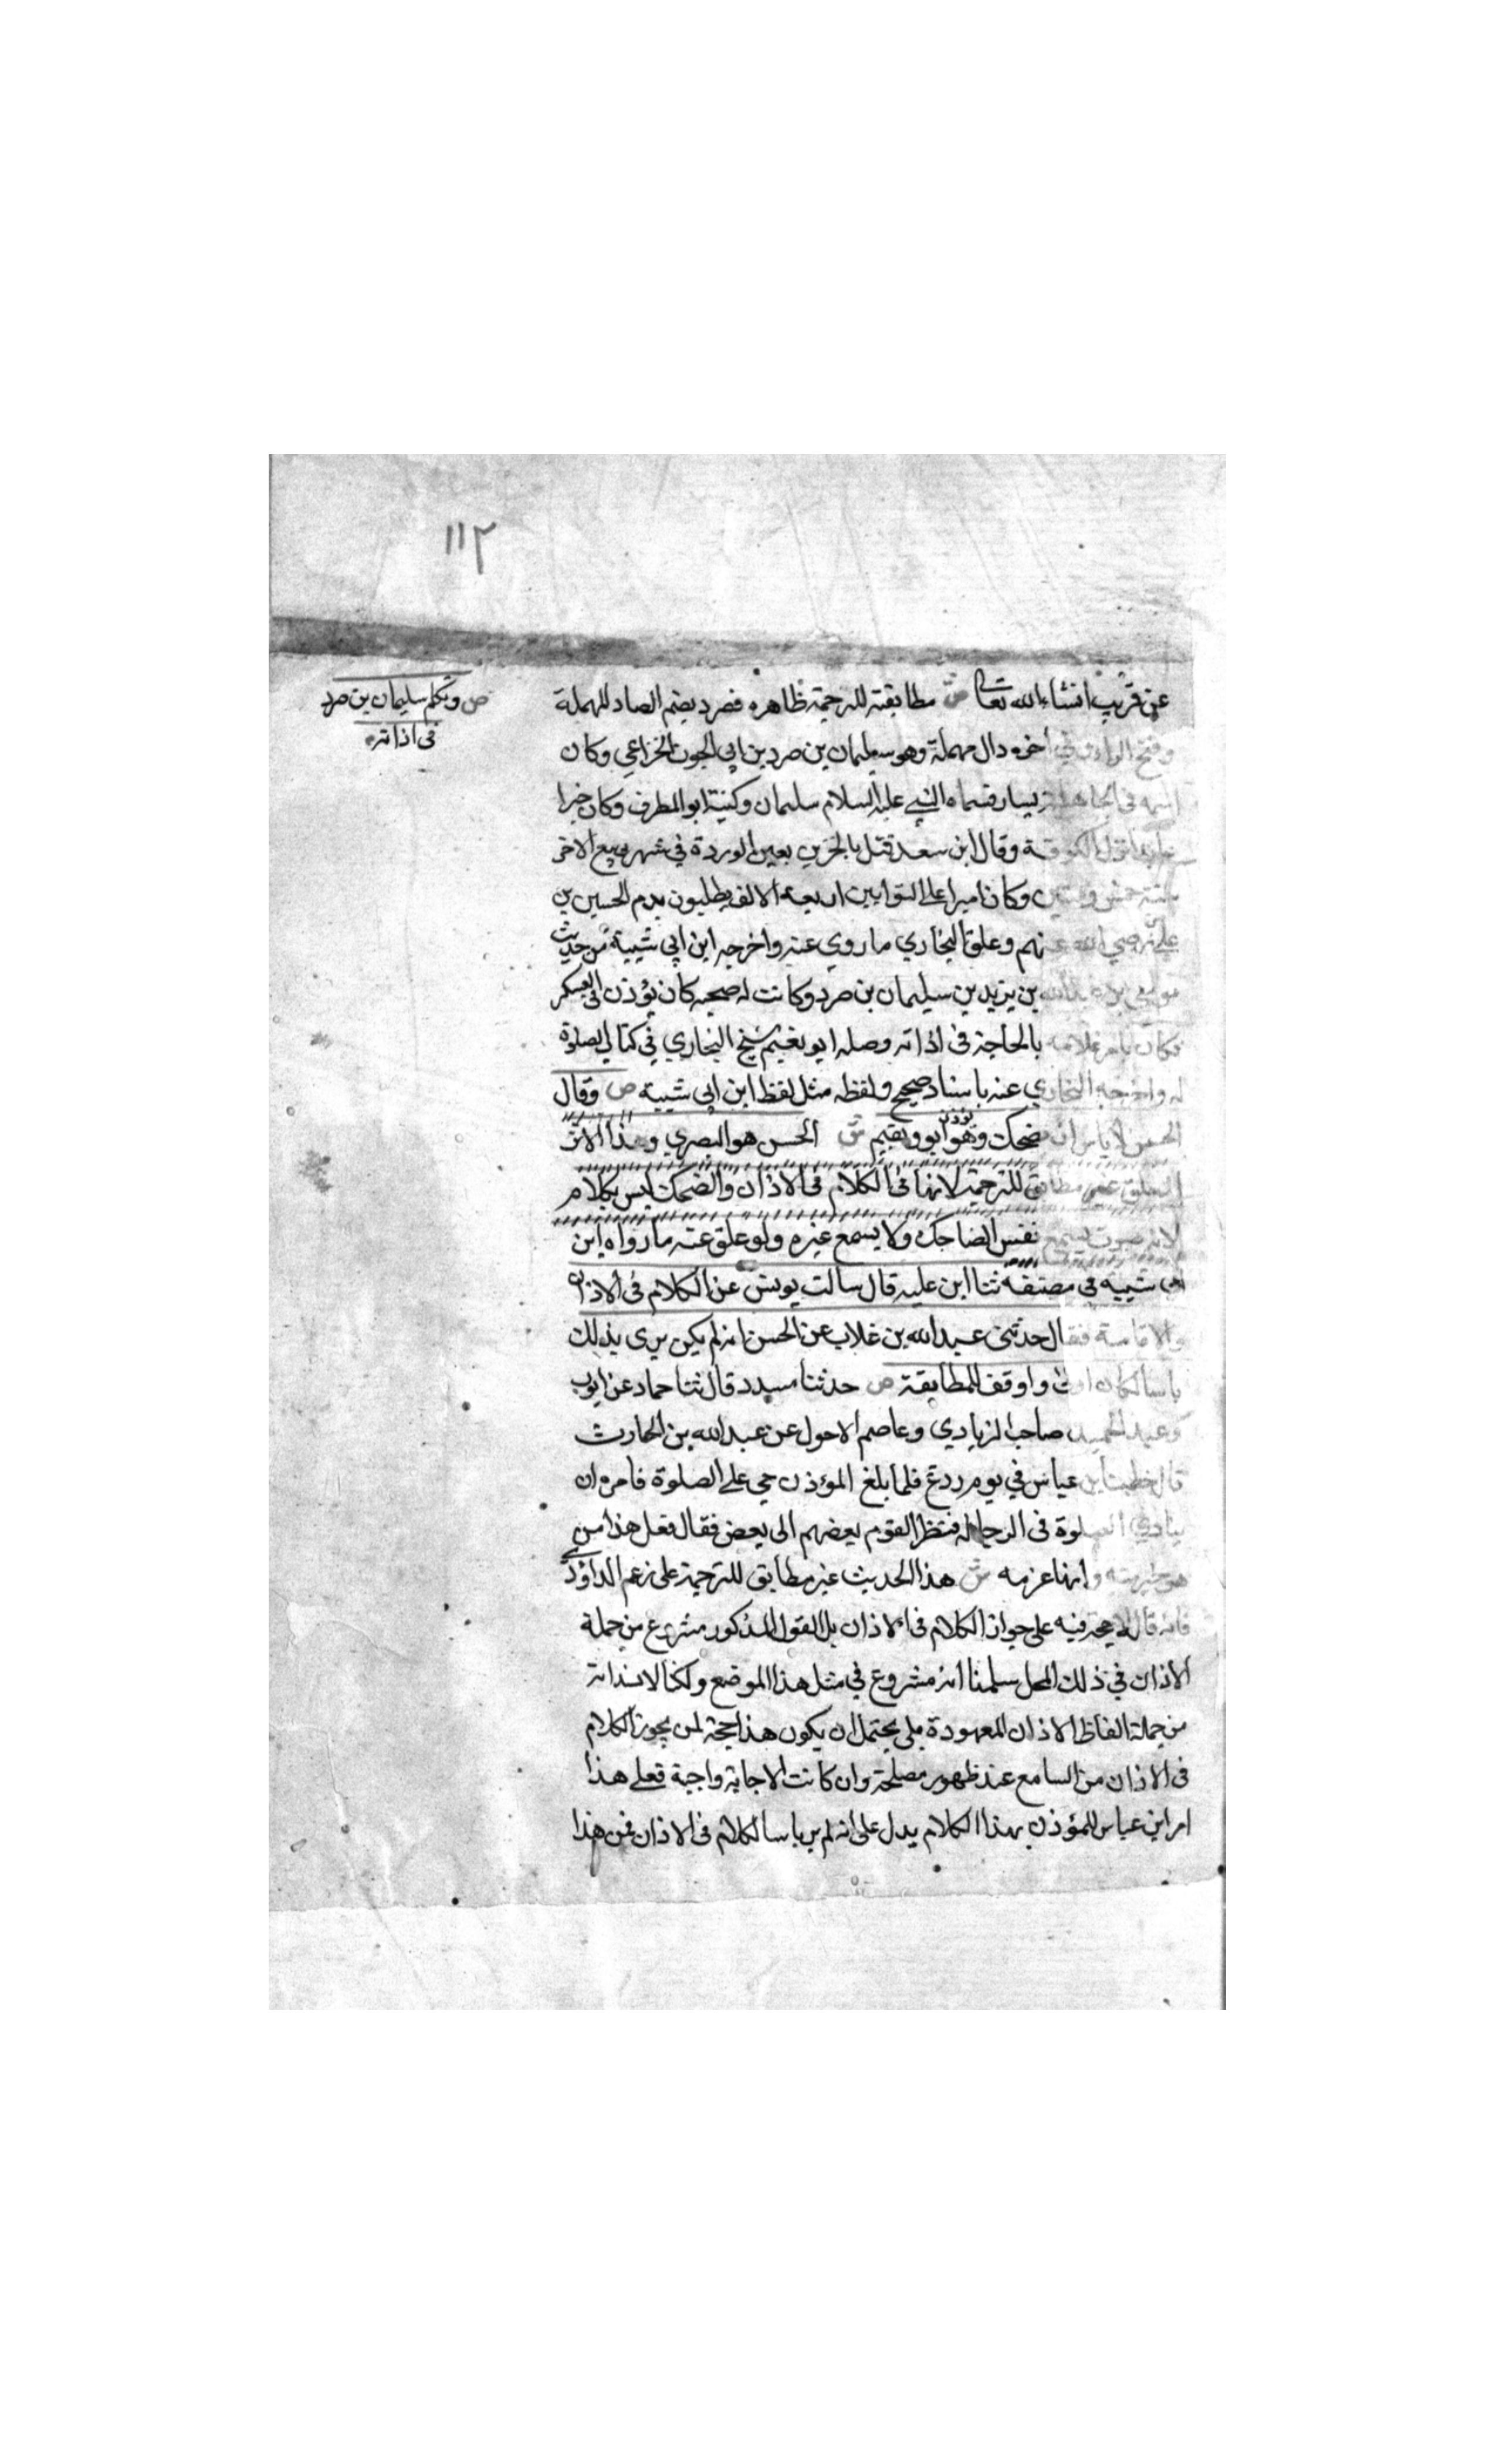 ١١٢
ص وتكلم سليمان بن صرد
فى اذانه
عن قريب انشاء الله تعالى ش مطابقته للترجمة ظاهره فصرد بضم الصاد المهملة
وفتح الراء وفي أخره دال مهملة وهو سليمان بن صرد بن ابى الجون الخزاعي وكان
اسمه فى الجاهلية يسار فسماه النبي عليه السلام سليمان وكنيته ابو المطرف وكان خيرا
نزل الكوفة وقال ابن سعد قتل بالجزيرة بعين الوردة في شهر ربيع الاخر
سنة خمس وستين وكان اميرا على التوابين اربعة الاف يطلبون بدم الحسين بن
على رضي الله عنهم وعلق البخاري ما روي عنه واخرجه ابن ابى شيبة من حديث
موسى بن عبد الله بن يزيد بن سليمان بن صرد وكانت له صحبه كان يؤذن فى العسكر
وكان يامر غلامه بالحاجة فى اذانه وصله ابو نعيم شيخ البخاري في كتاب الصلوة
له واخرجه البخاري عنه باسناد صحيح ولفظه مثل لفظ ابن ابى شيبه ص وقال
الحسن لا باس ان يضحك وهو يؤذن او يقيم ش الحسن هو البصري وهذا الاثر
المعلق غير مطابق للترجمة لانها فى الكلام فى الاذان والضحك ليس بكلام
لانه صوت يسمع نفس الضاحك ولا يسمع غيره ولو علق عنه ما رواه ابن
ابى شيبه فى مصنفه ثنا ابن عليه قال سالت يونس عن الكلام فى الاذان
والاقامة فقال حدثنى عبيد الله بن غلاب عن الحسن انه لم يكن يرى بذلك
باسا لكان اولى واوقف للمطابقة ص حدثنا مسدد قال ثنا حماد عن ايوب
وعبد الحميد صاحب الزيادي وعاصم الاحول عن عبد الله بن الحارث
قال خطبنا ابن عباس في يوم ردغ فلما بلغ المؤذن حي على الصلوة فامره ان
ينادي الصلوة فى الرحال فنظر القوم بعضهم الى بعض فقال فعل هذا من
هو خير منه وانها عزمه ش هذا الحديث غير مطابق للترجمة على زعم الداؤدي
فانه قال لا حجة فيه على جواز الكلام فى الاذان بل القول المذكور مشروع من جملة
الاذان في ذلك المحل سلمنا انه مشروع في مثل هذا الموضع ولكنا لا نسلم انه
من جملة الفاظ الاذان المعهودة بلى يحتمل ان يكون هذا حجة لمن يجوز الكلام
فى الاذان من السامع عند ظهور مصلحة وان كانت الاجابة واجبة فعلى هذا
امر ابن عباس للمؤذن بهذا الكلام يدل على انه لم ير باسا الكلام فى الاذان فمن هذا